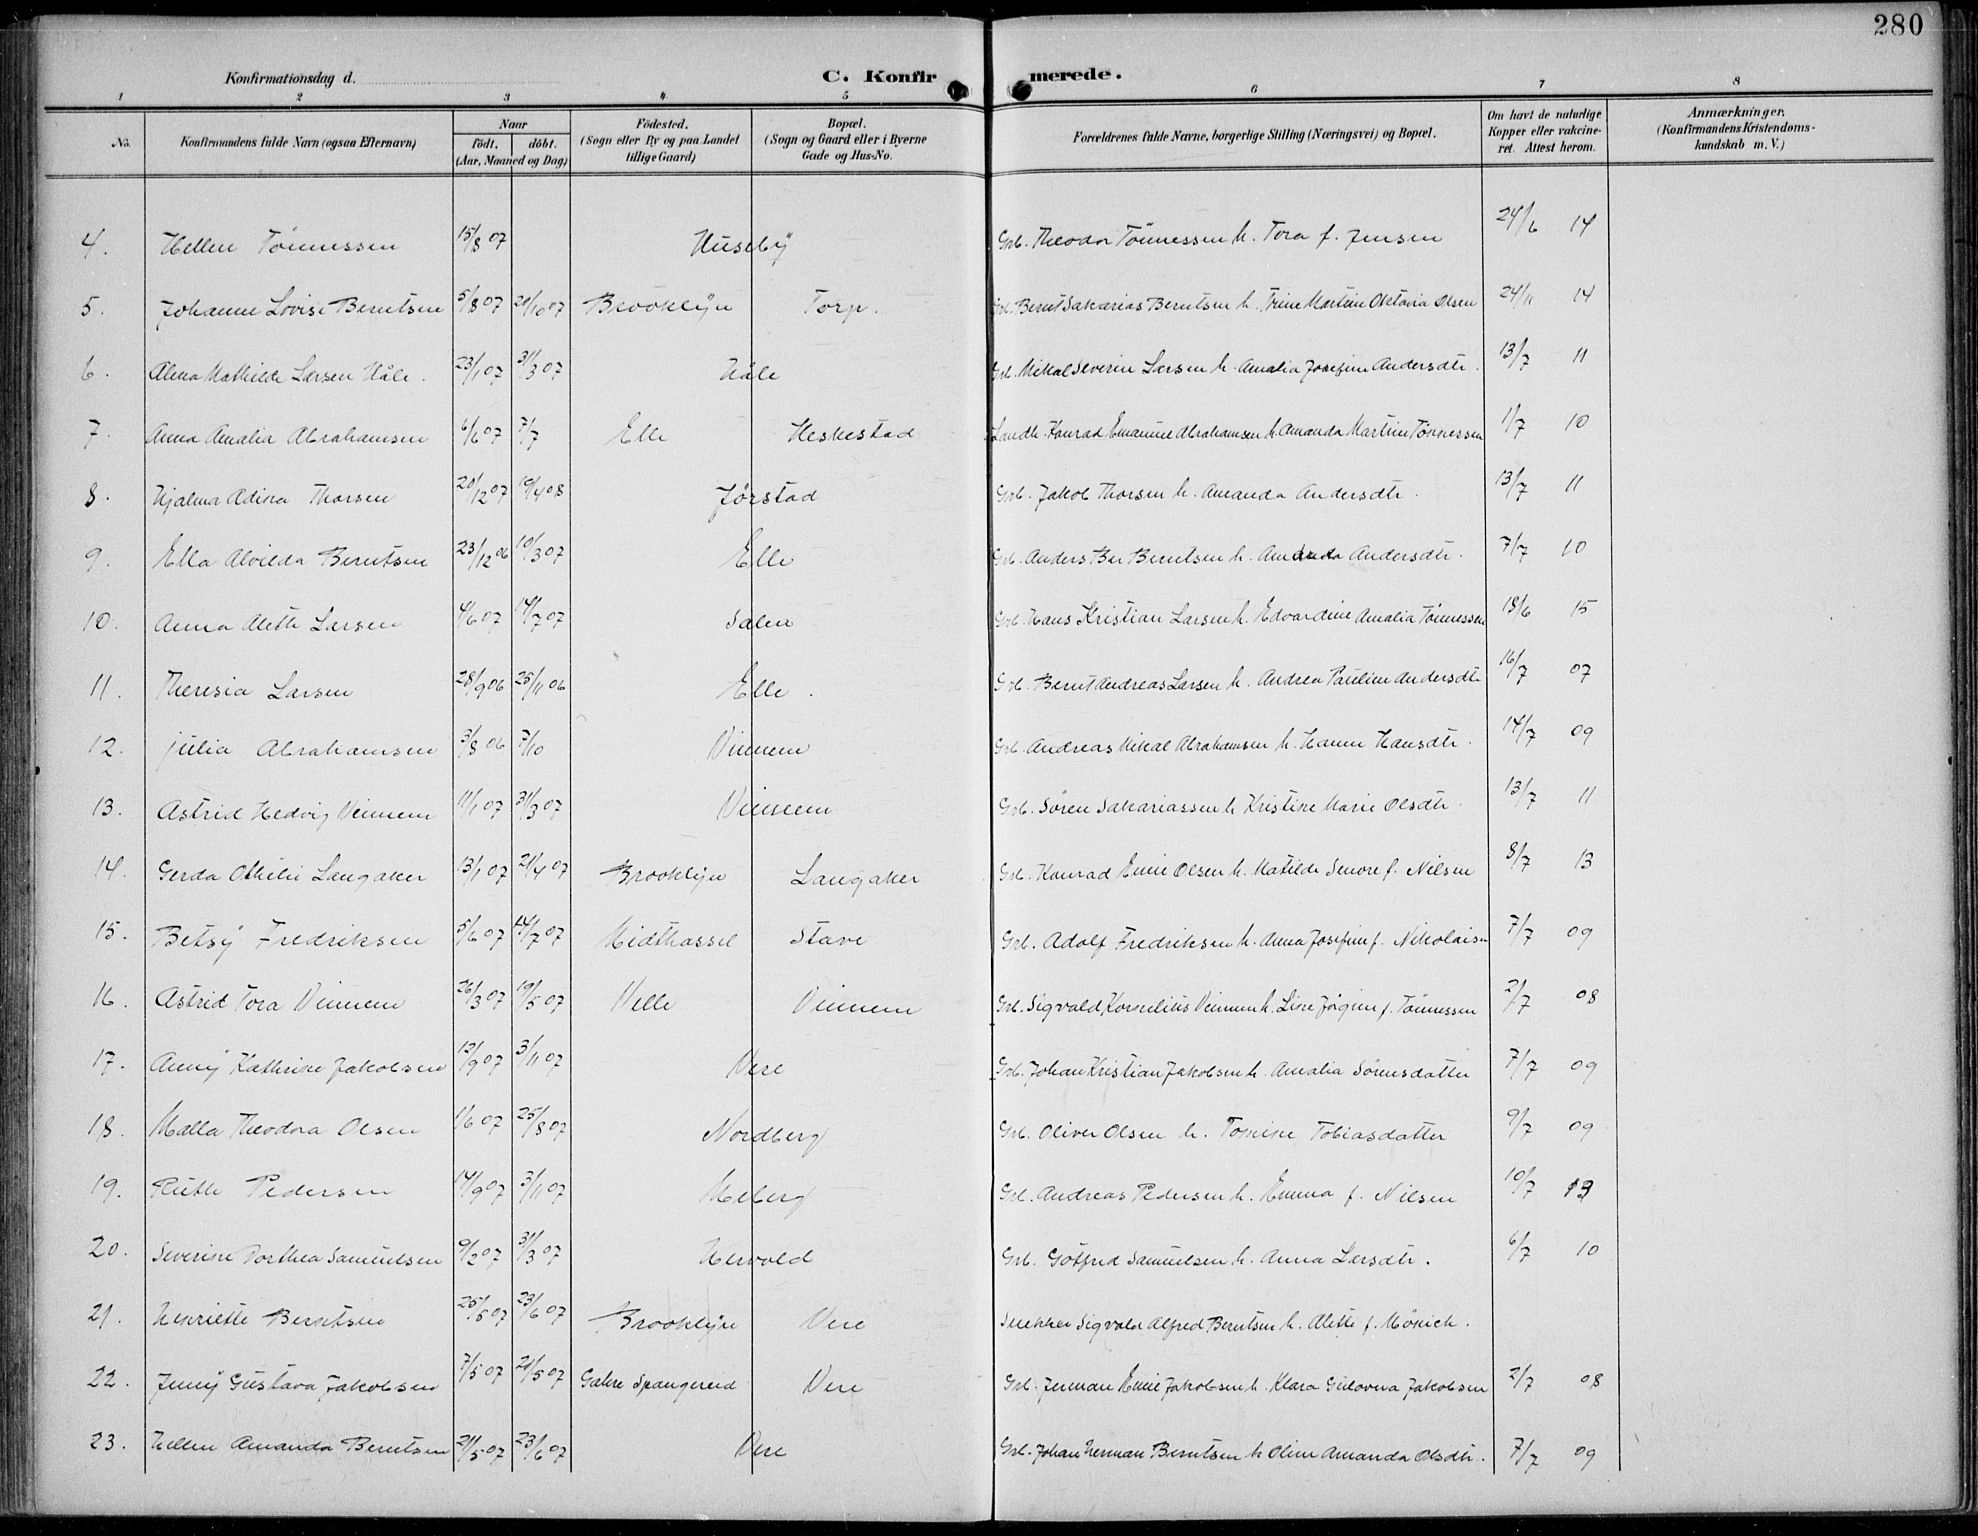 280
Konfirmationsdag d.
C. Konfirmerede.
1 2 3 4 5 6 7 8
No. Konfirmandens fulde Navn (ogsaa Efternavn) Naar födt. döbt. (Aar, Maaned og Dag) Födested. (Sogn eller By og paa Landet tillige Gaard) Bopæl. (Sogn og Gaard eller i Byerne Gade og Hus-No. Forældrenes fulde Navne, borgerlige Stilling (Næringsvei) og Bopæl. Om havt de naturlige Kopper eller vakcineret. Attest herom. Anmærkninger. (Konfirmandens Kristendomskundskab m. V.)
4. Hellen Tönnessen 15/8 07 Huseby Grb. Theodor Tönnessen h. Tora f. Jensen 24/6 14
5. Johanne Lovise Berntsen 5/8 07 20/10 07 Brooklyn Torp. Grb. Bernt Sakarias Berntsen h. Trine Martine Oktavia Olsen 24/11 14
6. Alma Mathilde Larsen Håle. 23/1 07 31/3 07 Håle Grb. Mikal Severin Larsen h. Amalia Josefine Andersdtr. 13/7 11
7. Anna Amalia Abrahamsen 6/6 07 7/7 Elle Heskestad Landh. Konrad Emanuel Abrahamsen h. Amanda Martine Tönnessen 1/7 10
8. Hjalma Adina Thorsen 20/12 07 19/4 08 Jørstad Grb. Jakob Thorsen h. Amanda Andersdtr. 13/7 11
9. Ella Alvilda Berntsen 23/12 06 10/3 07 Elle Grb. Anders Ber Berntsen h. Amanda Andersdtr. 7/7 10
10. Anna Aleth Larsen 4/6 07 14/7 07 Salen Grb. Hans Kristian Larsen h. Edvardine Amalia Tönnessen 18/6 15
11. Theresia Larsen 28/9 06 25/11 06 Elle. Grb. Bernt Andreas Larsen h. Andrea Pauline Andersdtr 16/7 07
12. Julia Abrahamsen 3/8 06 7/10 Vinnem Grb. Andreas Mikal Abrahamsen h. Hanne Hansdtr. 14/7 09
13. Astrid Hedvig Vinnem 11/1 07 31/3 07 Vinnem Grb. Sören Sakariassen h Kristine Marie Olsdtr. 13/7 11
14. Gerda Othilie Langaker 13/1 07 21/4 07 Brooklyn Langaker Grb. Konrad Emil Olsen h. Matilde Senore f. Nilsen 8/7 13
15. Betsy Fredriksen 5/6 07 14/7 07 Midthassel Stave Grb. Adolf Fredriksen h. Anna Josefine f. Nikolaisen 7/7 09
16. Astrid Tora Vinnem 26/3 07 19/5 07 Velle Vinnem Grb. Sigvald Kornelius Vinnem h. Line Jörgine f. Tönnessen 2/7 08
17. Anny Kathrine Jakobsen 13/9 07 3/11 07 Vere Grb. Johan Kristian Jakobsen h. Amalia Sörensdatter 7/7 09
18. Malla Theodora Olsen 1/6 07 25/8 07 Nordberg Grb. Oliver Olsen h. Tomine Tobiasdatter 9/7 09
19. Ruth Pedersen 14/9 07 3/11 07 Meberg Grb. Andreas Pedersen h. Emma f. Nilsen 10/7 13
20. Severine Dorthea Samuelsen 9/2 07 31/3 07 Hervold Grb. Gotfred Samuelsen h. Anna Larsdtr. 6/7 10
21. Henriette Berntsen 25/5 07 23/6 07 Brooklyn Vere Snekker Sigvald Alfred Berntsen h. Alette f. Mönich.
22. Jenny Gustava Jakobsen 7/5 07 20/5 07 Gahre Spangereid Vere Grb. Jerman Emil Jakobsen h. Klara Gulovna Jakobsen 2/7 08
23. Hellen Amanda Berntsen 21/5 07 23/6 07 Vere Grb. Johan Herman Berntsen h. Oline Amanda Olsdtr. 7/7 09